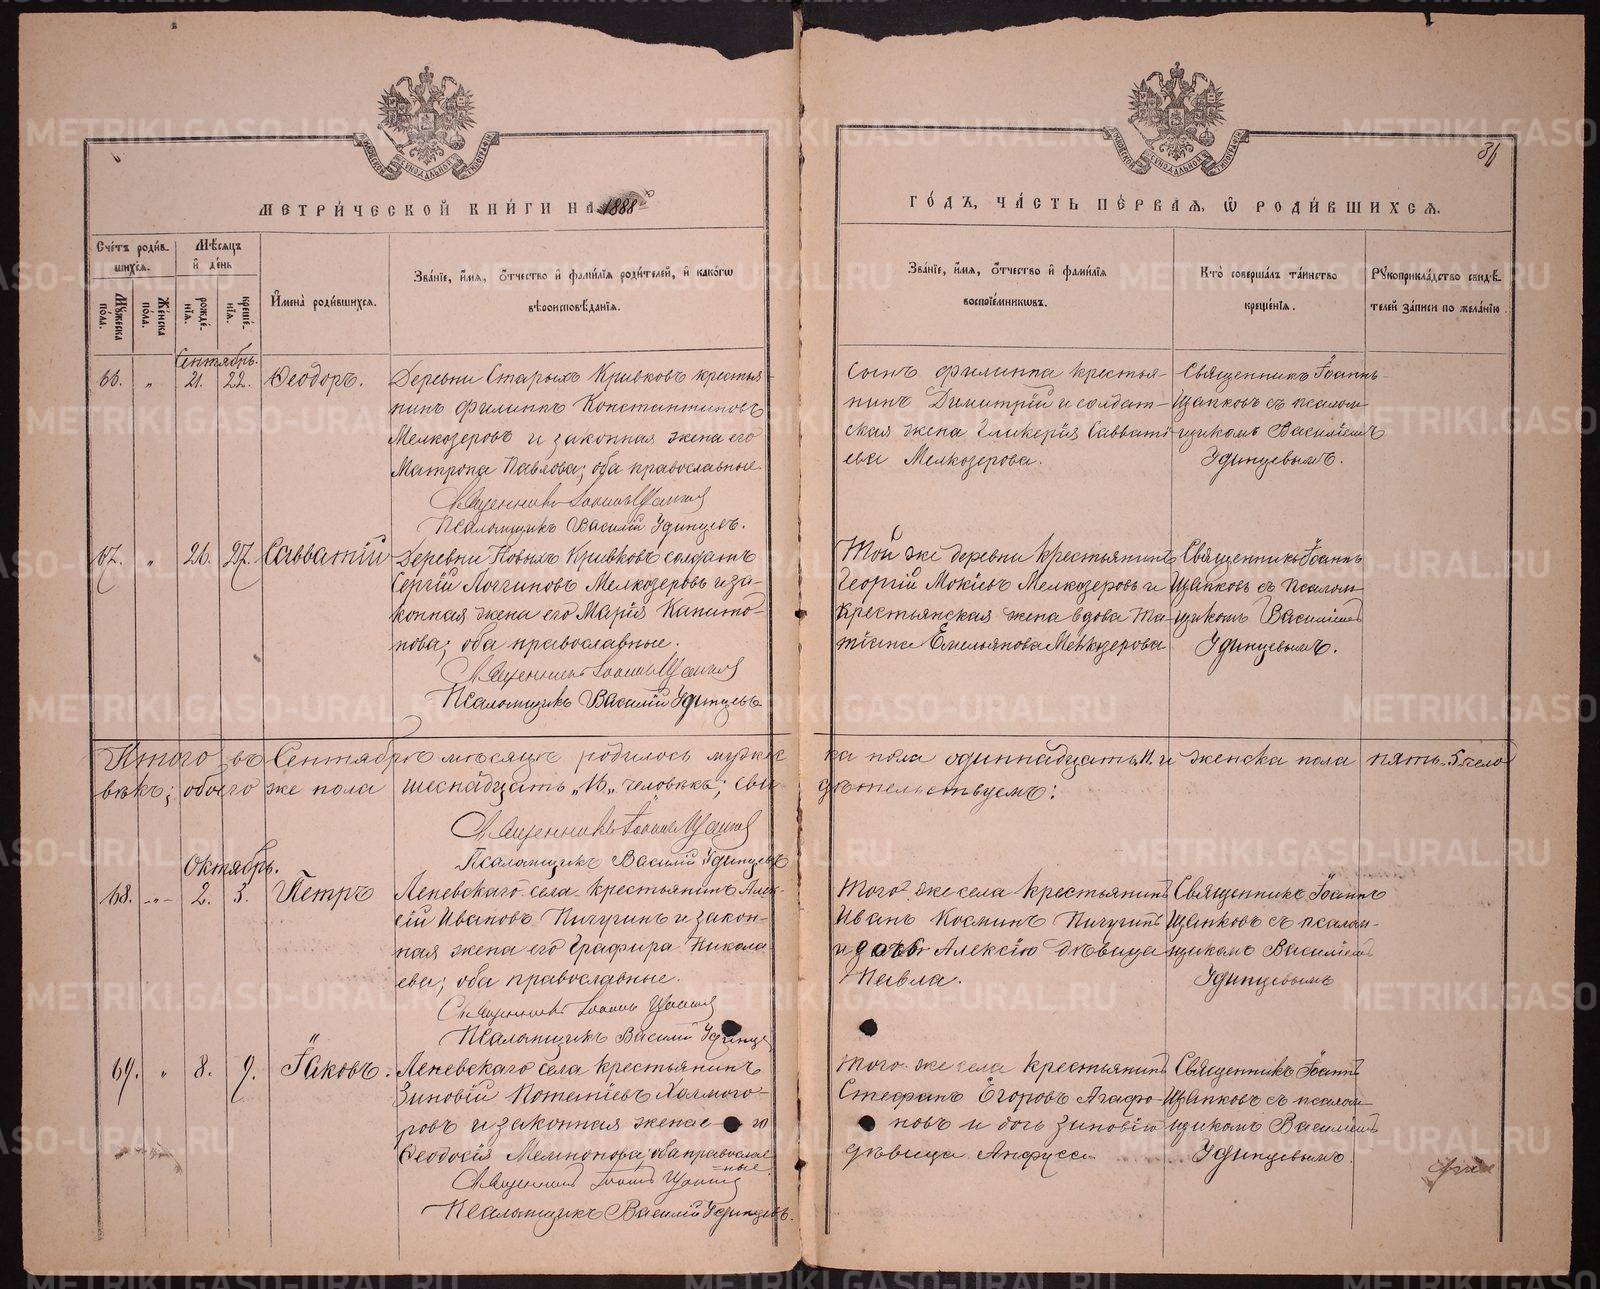 МЕТРИ́ЧЕСКОЙ КНИ́ГИ НА 1888й
ГО́ДЪ, ЧА́СТЬ ПЕ́РВАЯ, Ѽ РОДИ́ВШИХСЯ.
Сче́тъ роди́в-
шихся.
Мѣсяцъ
и де́нь
Му́жеска по́ла.
Же́нска по́ла.
рожде́нія.
креще́нія.
Имена́ роди́вшихся.
Зва́ніе, и́мя, о́тчество и фами́лія роди́телей, и како́гѡ
вѣроисповѣ́данія.
Зва́ніе, и́мя, о́тчество и фами́лія
воспріе́мниковъ.
Кто̀ соверша́лъ та́инство
креще́нія.
Рукоприкла́дство свидѣ́-
телей за́писи по жела́нію.
Сентябрь.
66. „ 21. 22. Ѳеодоръ.
Деревни Старыхъ Кривковъ крестья-
нинъ Филиппъ Константиновъ
Мелкозеровъ и законная жена его
Матрона Павлова; оба православные
Священникъ Іоаннъ Щапковъ
Псаломщикъ Василій Удинцевъ.
Сынъ Филиппа крестья-
нинъ Димитрій и солдат-
ская жена Гликерія Савватi-
ева Мелкозерова.
Священникъ Іоаннъ
Щапковъ съ псалом-
щикомъ Василіемъ
Удинцевымъ.
67. „ 26. 27. Савватій
Деревни Новыхъ Кривковъ солдатъ
Сергій Логгиновъ Мелкозеровъ и за-
конная жена его Марія Капито-
нова; оба православные.
Священникъ Іоаннъ Щапковъ
Псаломщикъ Василій Удинцевъ
Той же деревни крестьянинъ
Георгій Мокіевъ Мелкозеровъ и
крестьянская жена вдова Та-
тіана Емельянова Мелкозерова
Священникъ Іоаннъ
Щапковъ съ псалом-
щикомъ Василіемъ
Удинцевымъ.
Итого въ Сентябрѣ мѣсяцѣ родилось мужес-
ка пола одиннадцать „11„ и женска пола пять „5„ чело-
вѣкъ; обоего же пола шеснадцать „16„ человѣкъ; сви-
дѣтельствуемъ:
Священникъ Іоаннъ Щапковъ
Псаломщикъ Василій Удинцевъ
Октябрь.
68. „ 2. 3. Петръ
Леневскаго села крестьянинъ Алек-
сій Ивановъ Пичугинъ и закон-
ная жена его Графира Никола-
ева; оба православные.
Священникъ Іоаннъ Щапковъ
Псаломщикъ Василій Удинце
Того же села крестьянинъ
Иванъ Косминъ Пичугинъ
и дочь Алексію дѣвица
Павла.
Священникъ Іоаннъ
Щапковъ съ псалом-
щикомъ Василіемъ
Удинцевымъ
69. „ 8. 9. Іаковъ.
Леневскаго села крестьянинъ
Зиновій Потапіевъ Холмого-
ровъ и законная жена его
Ѳеодосія Мемнонова оба православ-
ные.
Священникъ Іоаннъ Щапковъ
Псаломщикъ Василій Удинцевъ.
Того же села крестьянинъ
Стефанъ Егоровъ Агафо-
новъ и дочь Зиновію
дѣвица Анфуса
Священникъ Іоаннъ
Щапковъ съ псалом-
щикомъ Василіемъ
Удинцевымъ.
METRIKI.GASO-URAL.RU